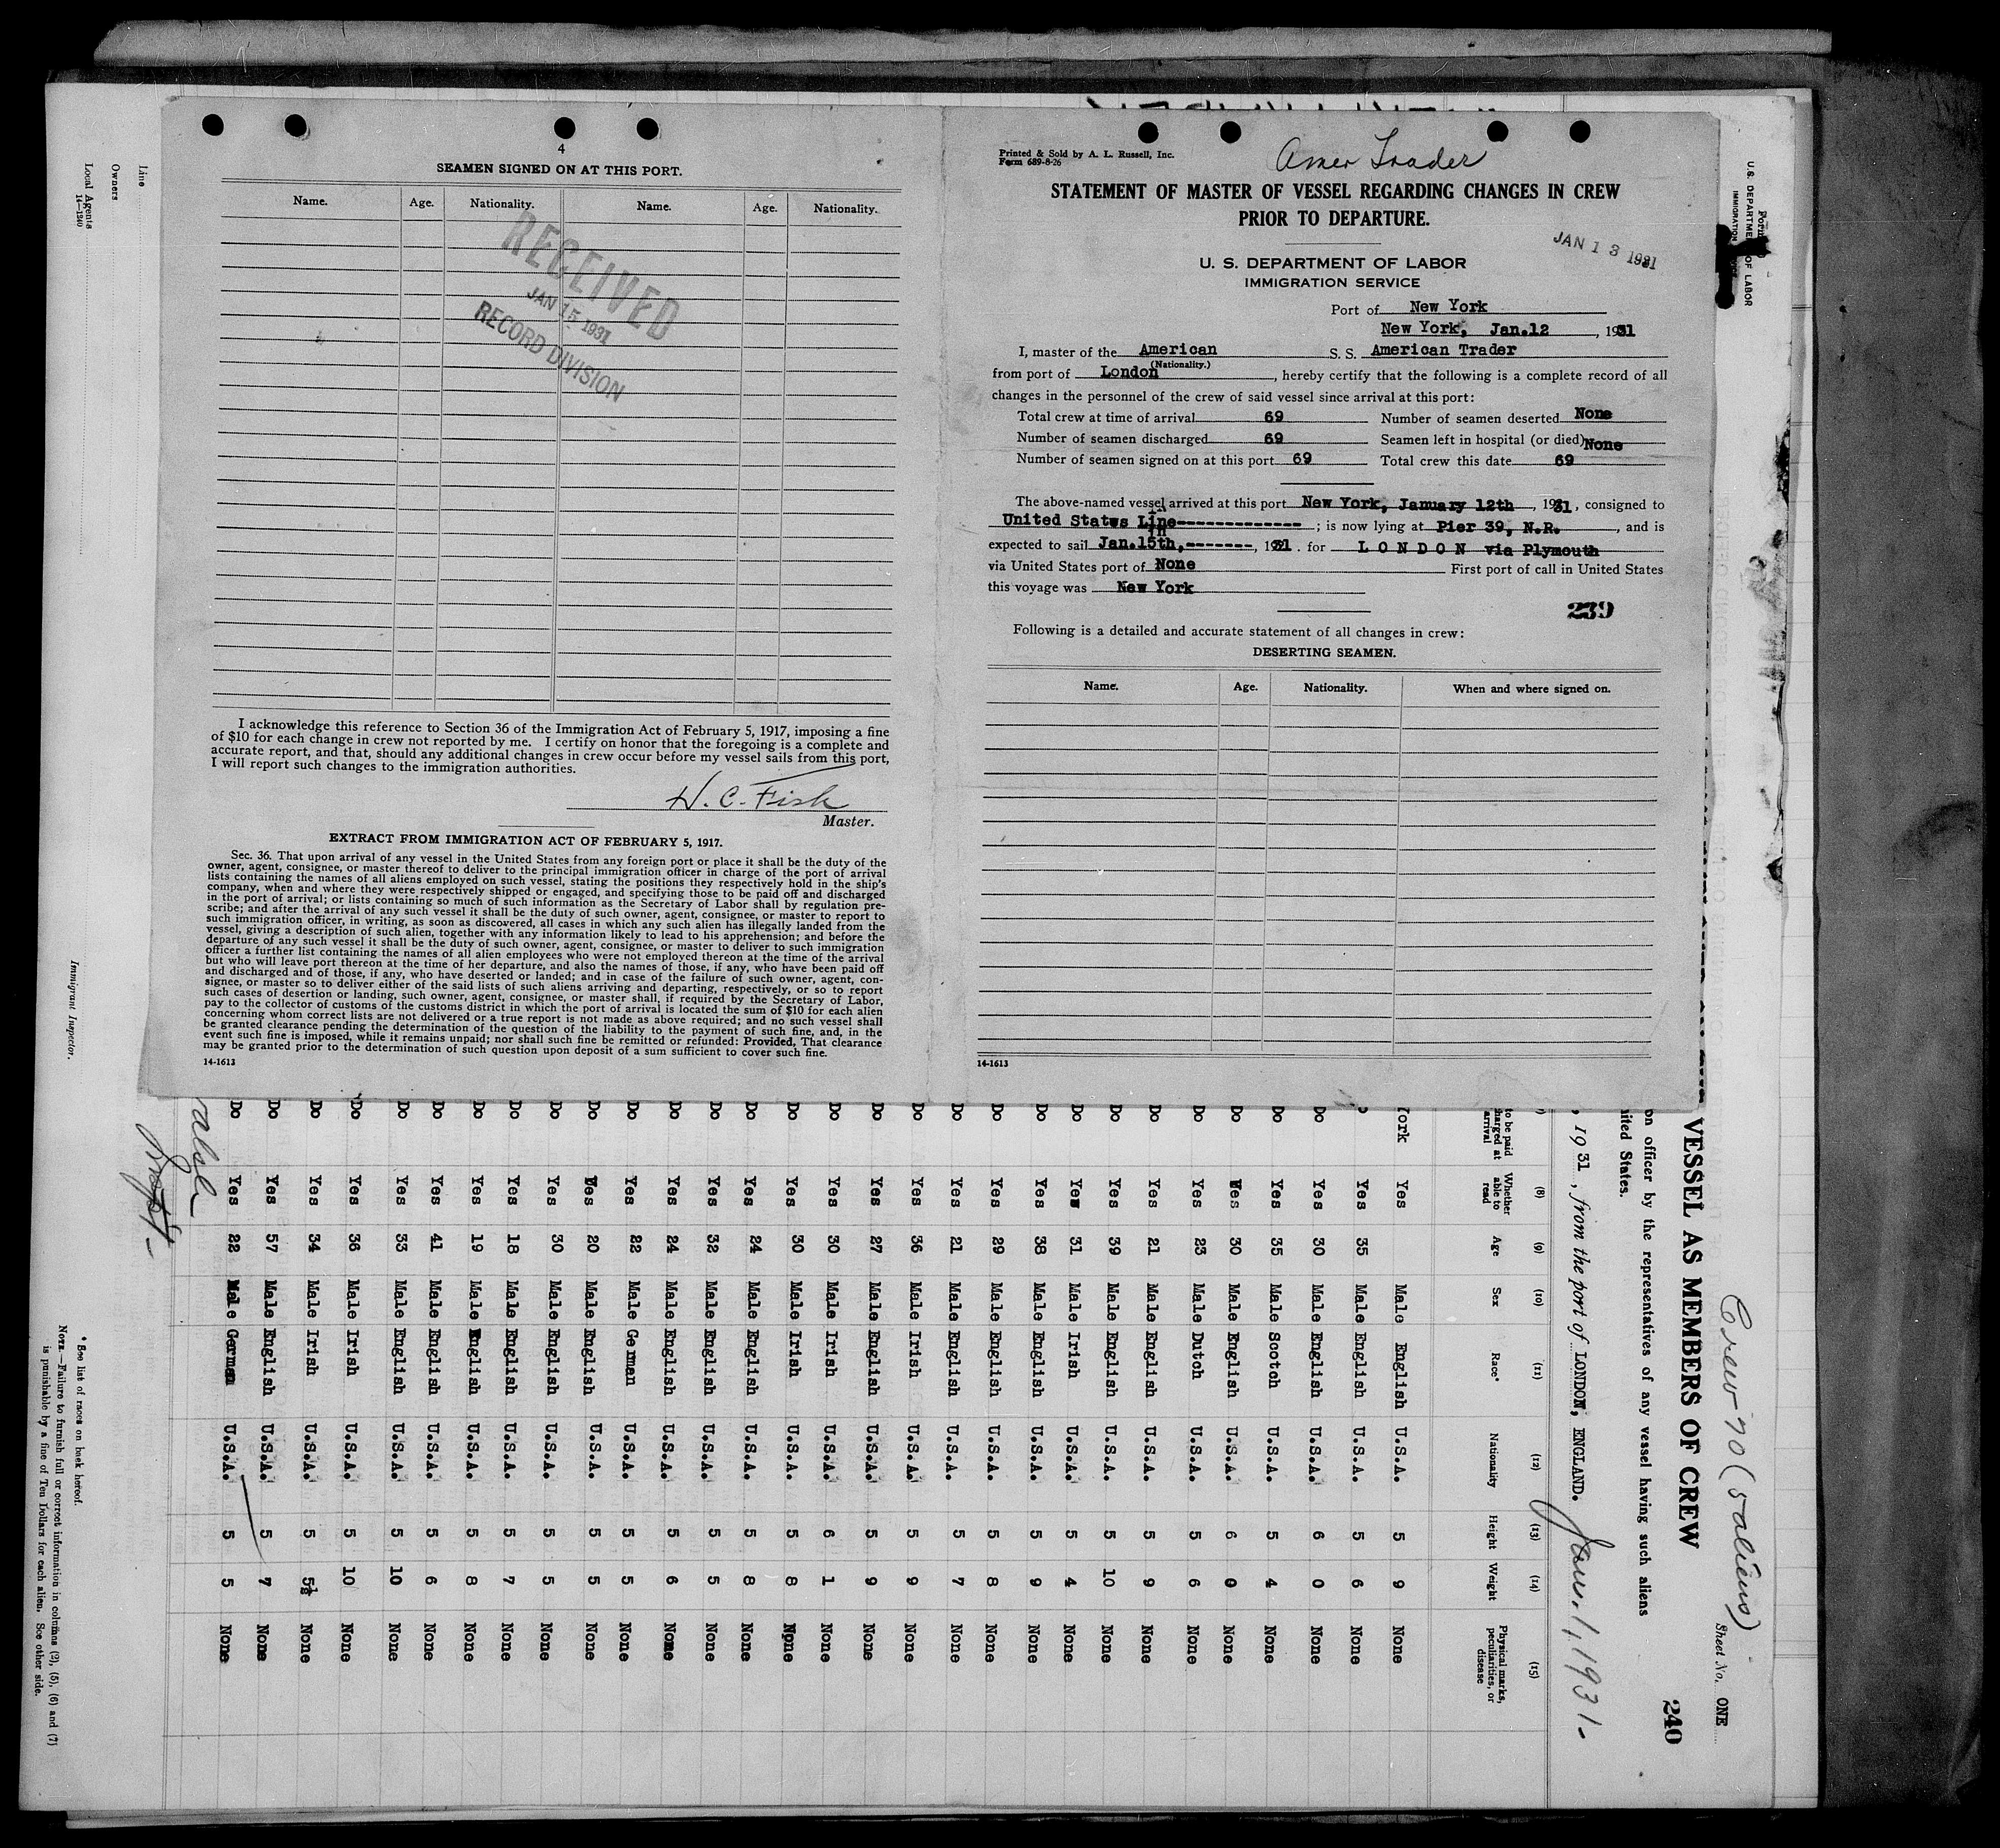 4
SEAMEN SIGNED ON AT THIS PORT.
Name. Age. Nationality. Name. Age. Nationality.
RECEIVED
JAN 15 1931
RECORD DIVISION
I acknowledge this reference to Section 36 of the Immigration Act of February 5, 1917, imposing a fine
of $10 for each change in crew not reported by me. I certify on honor that the foregoing is a complete and
accurate report, and that, should any additional changes in crew occur before my vessel sails from this port,
I will report such changes to the immigration authorities.
H. C. Fisk
Master.
EXTRACT FROM IMMIGRATION ACT OF FEBRUARY 5, 1917.
Sec. 36. That upon arrival of any vessel in the United States from any foreign port or place it shall be the duty of the
owner, agent, consignee, or master thereof to deliver to the principal immigration officer in charge of the port of arrival
lists containing the names of all aliens employed on such vessel, stating the positions they respectively hold in the ship's
company, when and where they were respectively shipped or engaged, and specifying those to be paid off and discharged
in the port of arrival; or lists containing so much of such information as the Secretary of Labor shall by regulation pre-
scribe; and after the arrival of any such vessel it shall be the duty of such owner, agent, consignee, or master to report to
such immigration officer, in writing, as soon as discovered, all cases in which any such alien has illegally landed from the
vessel, giving a description of such alien, together with any information likely to lead to his apprehension; and before the
departure of any such vessel it shall be the duty of such owner, agent, consignee, or master to deliver to such immigration
officer a further list containing the names of all alien employees who were not employed thereon at the time of the arrival
but who will leave port thereon at the time of her departure, and also the names of those, if any, who have been paid off
and discharged and of those, if any, who have deserted or landed; and in case of the failure of such owner, agent, con-
signee, or master so to deliver either of the said lists of such aliens arriving and departing, respectively, or so to report
such cases of desertion or landing, such owner, agent, consignee, or master shall, if required by the Secretary of Labor,
pay to the collector of customs of the customs district in which the port of arrival is located the sum of $10 for each alien
concerning whom correct lists are not delivered or a true report is not made as above required; and no such vessel shall
be granted clearance pending the determination of the question of the liability to the payment of such fine, and, in the
event such fine is imposed, while it remains unpaid; nor shall such fine be remitted or refunded: Provided, That clearance
may be granted prior to the determination of such question upon deposit of a sum sufficient to cover such fine.
14-1613
Printed & Sold by A. L. Russell, Inc.
Form 689-8-26
Amer Trader
STATEMENT OF MASTER OF VESSEL REGARDING CHANGES IN CREW
PRIOR TO DEPARTURE.
JAN 13 1931
U. S. DEPARTMENT OF LABOR
IMMIGRATION SERVICE
Port of New York
New York, Jan.12, 1931
I, master of the American S. S. American Trader
(Nationality.)
from port of London, hereby certify that the following is a complete record of all
changes in the personnel of the crew of said vessel since arrival at this port:
Total crew at time of arrival 69 Number of seamen deserted None
Number of seamen discharged 69 Seamen left in hospital (or died) None
Number of seamen signed on at this port 69 Total crew this date 69
The above-named vessel arrived at this port New York, January 12th, 1931, consigned to
United States Line-------------; is now lying at Pier 39, N.R., and is
expected to sail Jan.15th,-------, 1931. for LONDON via Plymouth
via United States port of None First port of call in United States
this voyage was New York
239
Following is a detailed and accurate statement of all changes in crew:
DESERTING SEAMEN.
Name. Age. Nationality. When and where signed on.
14-1613
Crew 70 (5 aliens)
Sheet No. ONE
240
VESSEL AS MEMBERS OF CREW
on officer by the representatives of any vessel having such aliens
ited States.
, 1931, from the port of LONDON, ENGLAND. Jan. 1, 1931-
(8) (9) (10) (11) (12) (13) (14) (15)
to be paid
harged at
arrival
Whether
able to
read
Age Sex Race* Nationality Height Weight
Physical marks,
peculiarities, or
disease
York Yes Male English U.S.A. 5 9 None
Yes 35 Male English U.S.A. 5 6 None
Do Yes 30 Male English U.S.A. 6 0 None
Do Yes 35 Male Scotch U.S.A. 5 4 None
Do Yes 30 Male English U.S.A. 6 0 None
Do Yes 23 Male Dutch U.S.A. 5 6 None
Do Yes 21 Male English U.S.A. 5 9 None
Do Yes 39 Male English U.S.A. 5 10 None
Do Yes 31 Male Irish U.S.A. 5 4 None
Do Yes 38 Male English U.S.A. 5 9 None
Do Yes 29 Male English U.S.A. 5 8 None
Do Yes 21 Male English U.S.A. 5 7 None
Do Yes 36 Male Irish U.S.A. 5 9 None
Do Yes 27 Male English U.S.A. 5 9 None
Do Yes 30 Male Irish U.S.A. 6 1 None
Do Yes 30 Male Irish U.S.A. 5 8 None
Do Yes 24 Male English U.S.A. 5 8 None
Do Yes 32 Male English U.S.A. 5 5 None
Do Yes 24 Male English U.S.A. 5 6 None
Do Yes 22 Male German U.S.A. 5 5 None
Do Yes 20 Male English U.S.A. 5 5 None
Do Yes 30 Male English U.S.A. 5 5 None
Do Yes 18 Male English U.S.A. 5 7 None
Do Yes 19 Male English U.S.A. 5 8 None
Do Yes 41 Male English U.S.A. 5 6 None
Do Yes 33 Male English U.S.A. 5 10 None
Do Yes 36 Male Irish U.S.A. 5 10 None
Do Yes 34 Male Irish U.S.A. 5 5½ None
Do Yes 57 Male English U.S.A. 5 7 None
Do Yes 22 Male German U.S.A. 5 5 None
Line
Owners
Local Agents
14-1240
Immigrant Inspector.
* See list of races on back hereof.
NOTE.—Failure to furnish full or correct information in columns (2), (5), (6) and (7)
is punishable by a fine of Ten Dollars for each alien. See other side.
Form
U.S. DEPARTMENT OF LABOR
IMMIGRATION